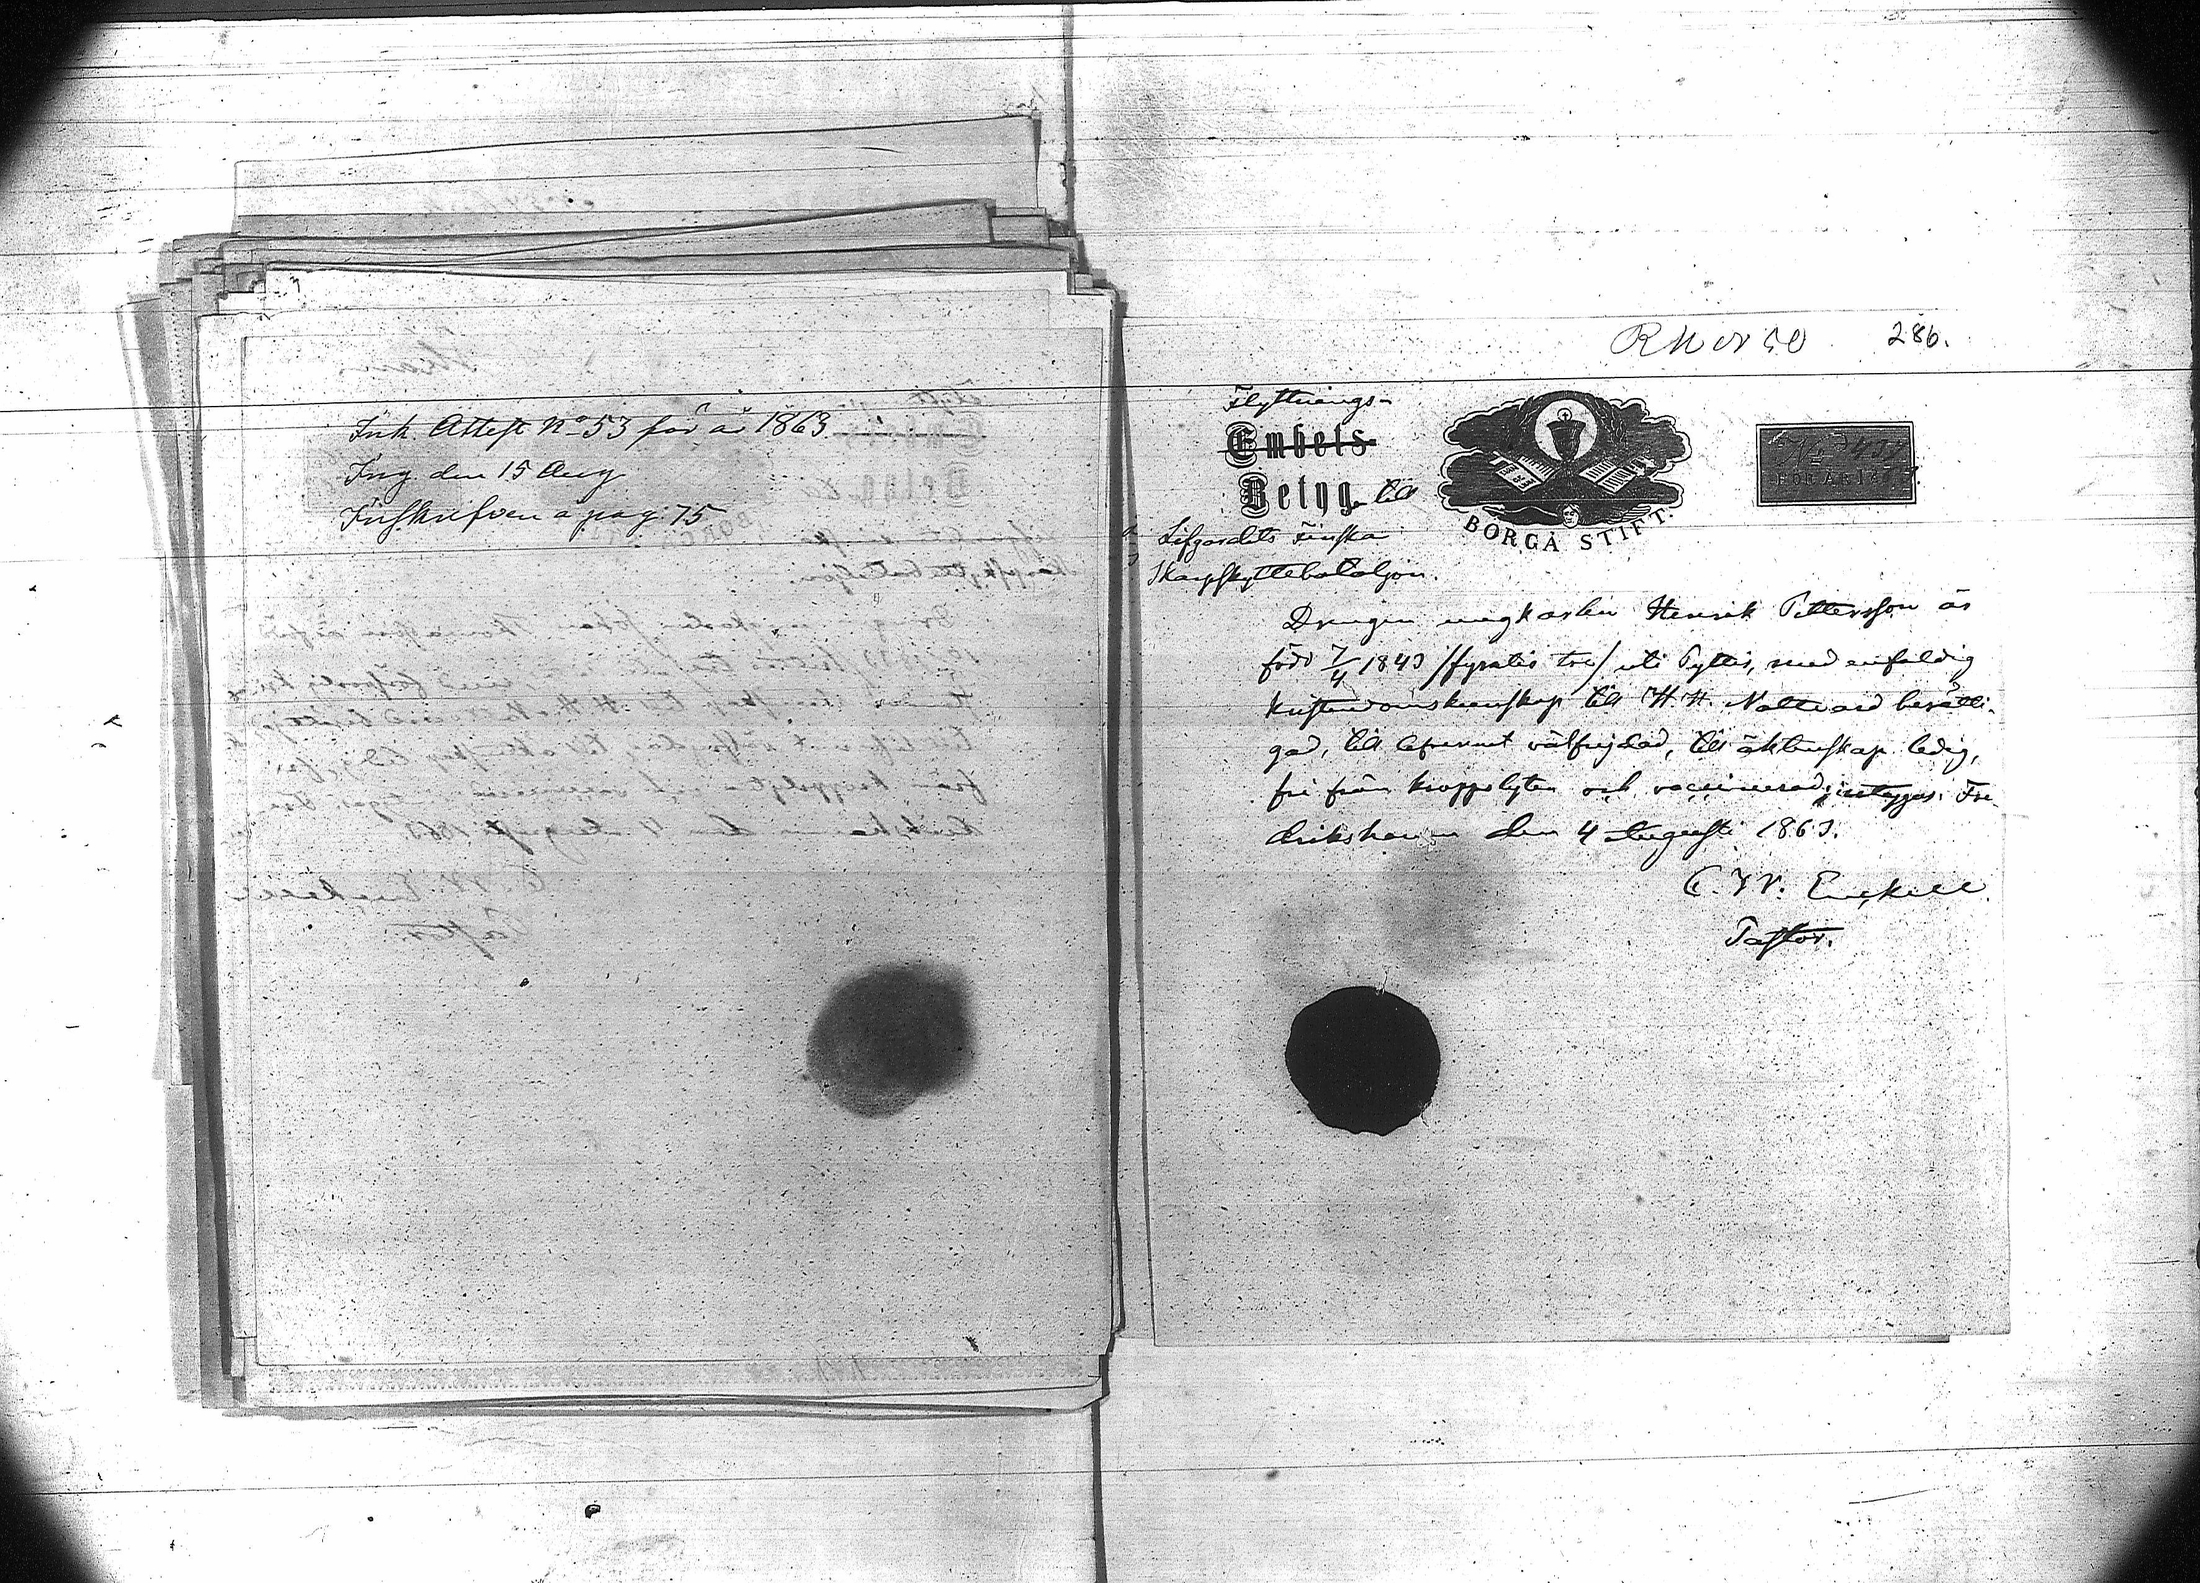 Ink. Attest No 53 för år 1863
Ing. den 15 Aug
Inskrifven å pag. 75
286.
Flyttnings-
Embets
Betyg till
BORGÅ STIFT.
No 437
FÖR ÅR 186
Lifgardets Finska
Skarpskyttebataljon.
Drengen ungkarlen Henrik Pettersson är
född 7/4 1843 /fyratio tre/ uti Pyttis, med enfaldig
kristendomskunskap till H. H. Nattvard berätti-
gad, till lefvernet välfrejdad, till äktenskap ledig,
fri från kroppslyten och vaccinerad; intygas. Fre-
drikshamn den 4 Augusti 1863.
C. W. Enckell
Pastor.